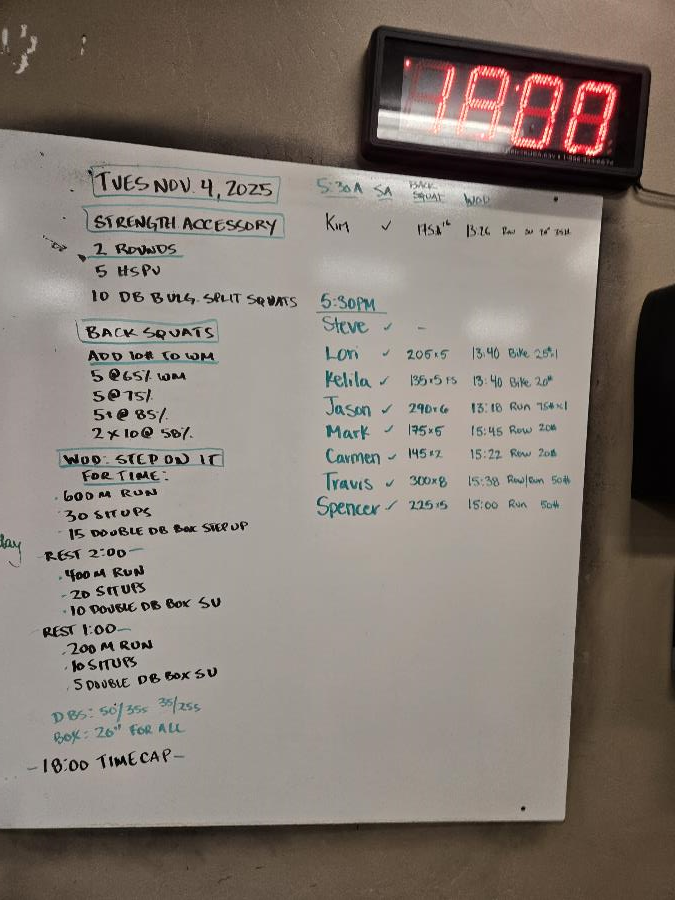 18:00
TUES NOV. 4, 2025
STRENGTH ACCESSORY
2 ROUNDS
5 HSPU
10 DB BULG. SPLIT SQUATS
BACK SQUATS
ADD 10# TO WM
5 @ 65% WM
5 @ 75%
5+ @ 85%
2 x 10 @ 50%
WOD: STEP ON IT
FOR TIME:
600 M RUN
30 SITUPS
15 DOUBLE DB BOX STEP UP
REST 2:00
400 M RUN
20 SITUPS
10 DOUBLE DB BOX SU
REST 1:00
200 M RUN
10 SITUPS
5 DOUBLE DB BOX SU
DBS: 50/35s 35/25s
BOX: 20" FOR ALL
-18:00 TIME CAP-
5:30A SA BACK SQUAT WOD
Kim ✓ 13:26 Row
5:30PM
Steve ✓ -
Lori ✓ 205x5 13:40 Bike
Kelila ✓ 135x5 FS 13:40 Bike 20#
Jason ✓ 290x6 13:18 Run
Mark ✓ 175x5 15:45 Row 20#
Carmen ✓ 145x2 15:22 Row 20#
Travis ✓ 300x8 15:38 Row/Run 50#
Spencer ✓ 225x5 15:00 Run 50#